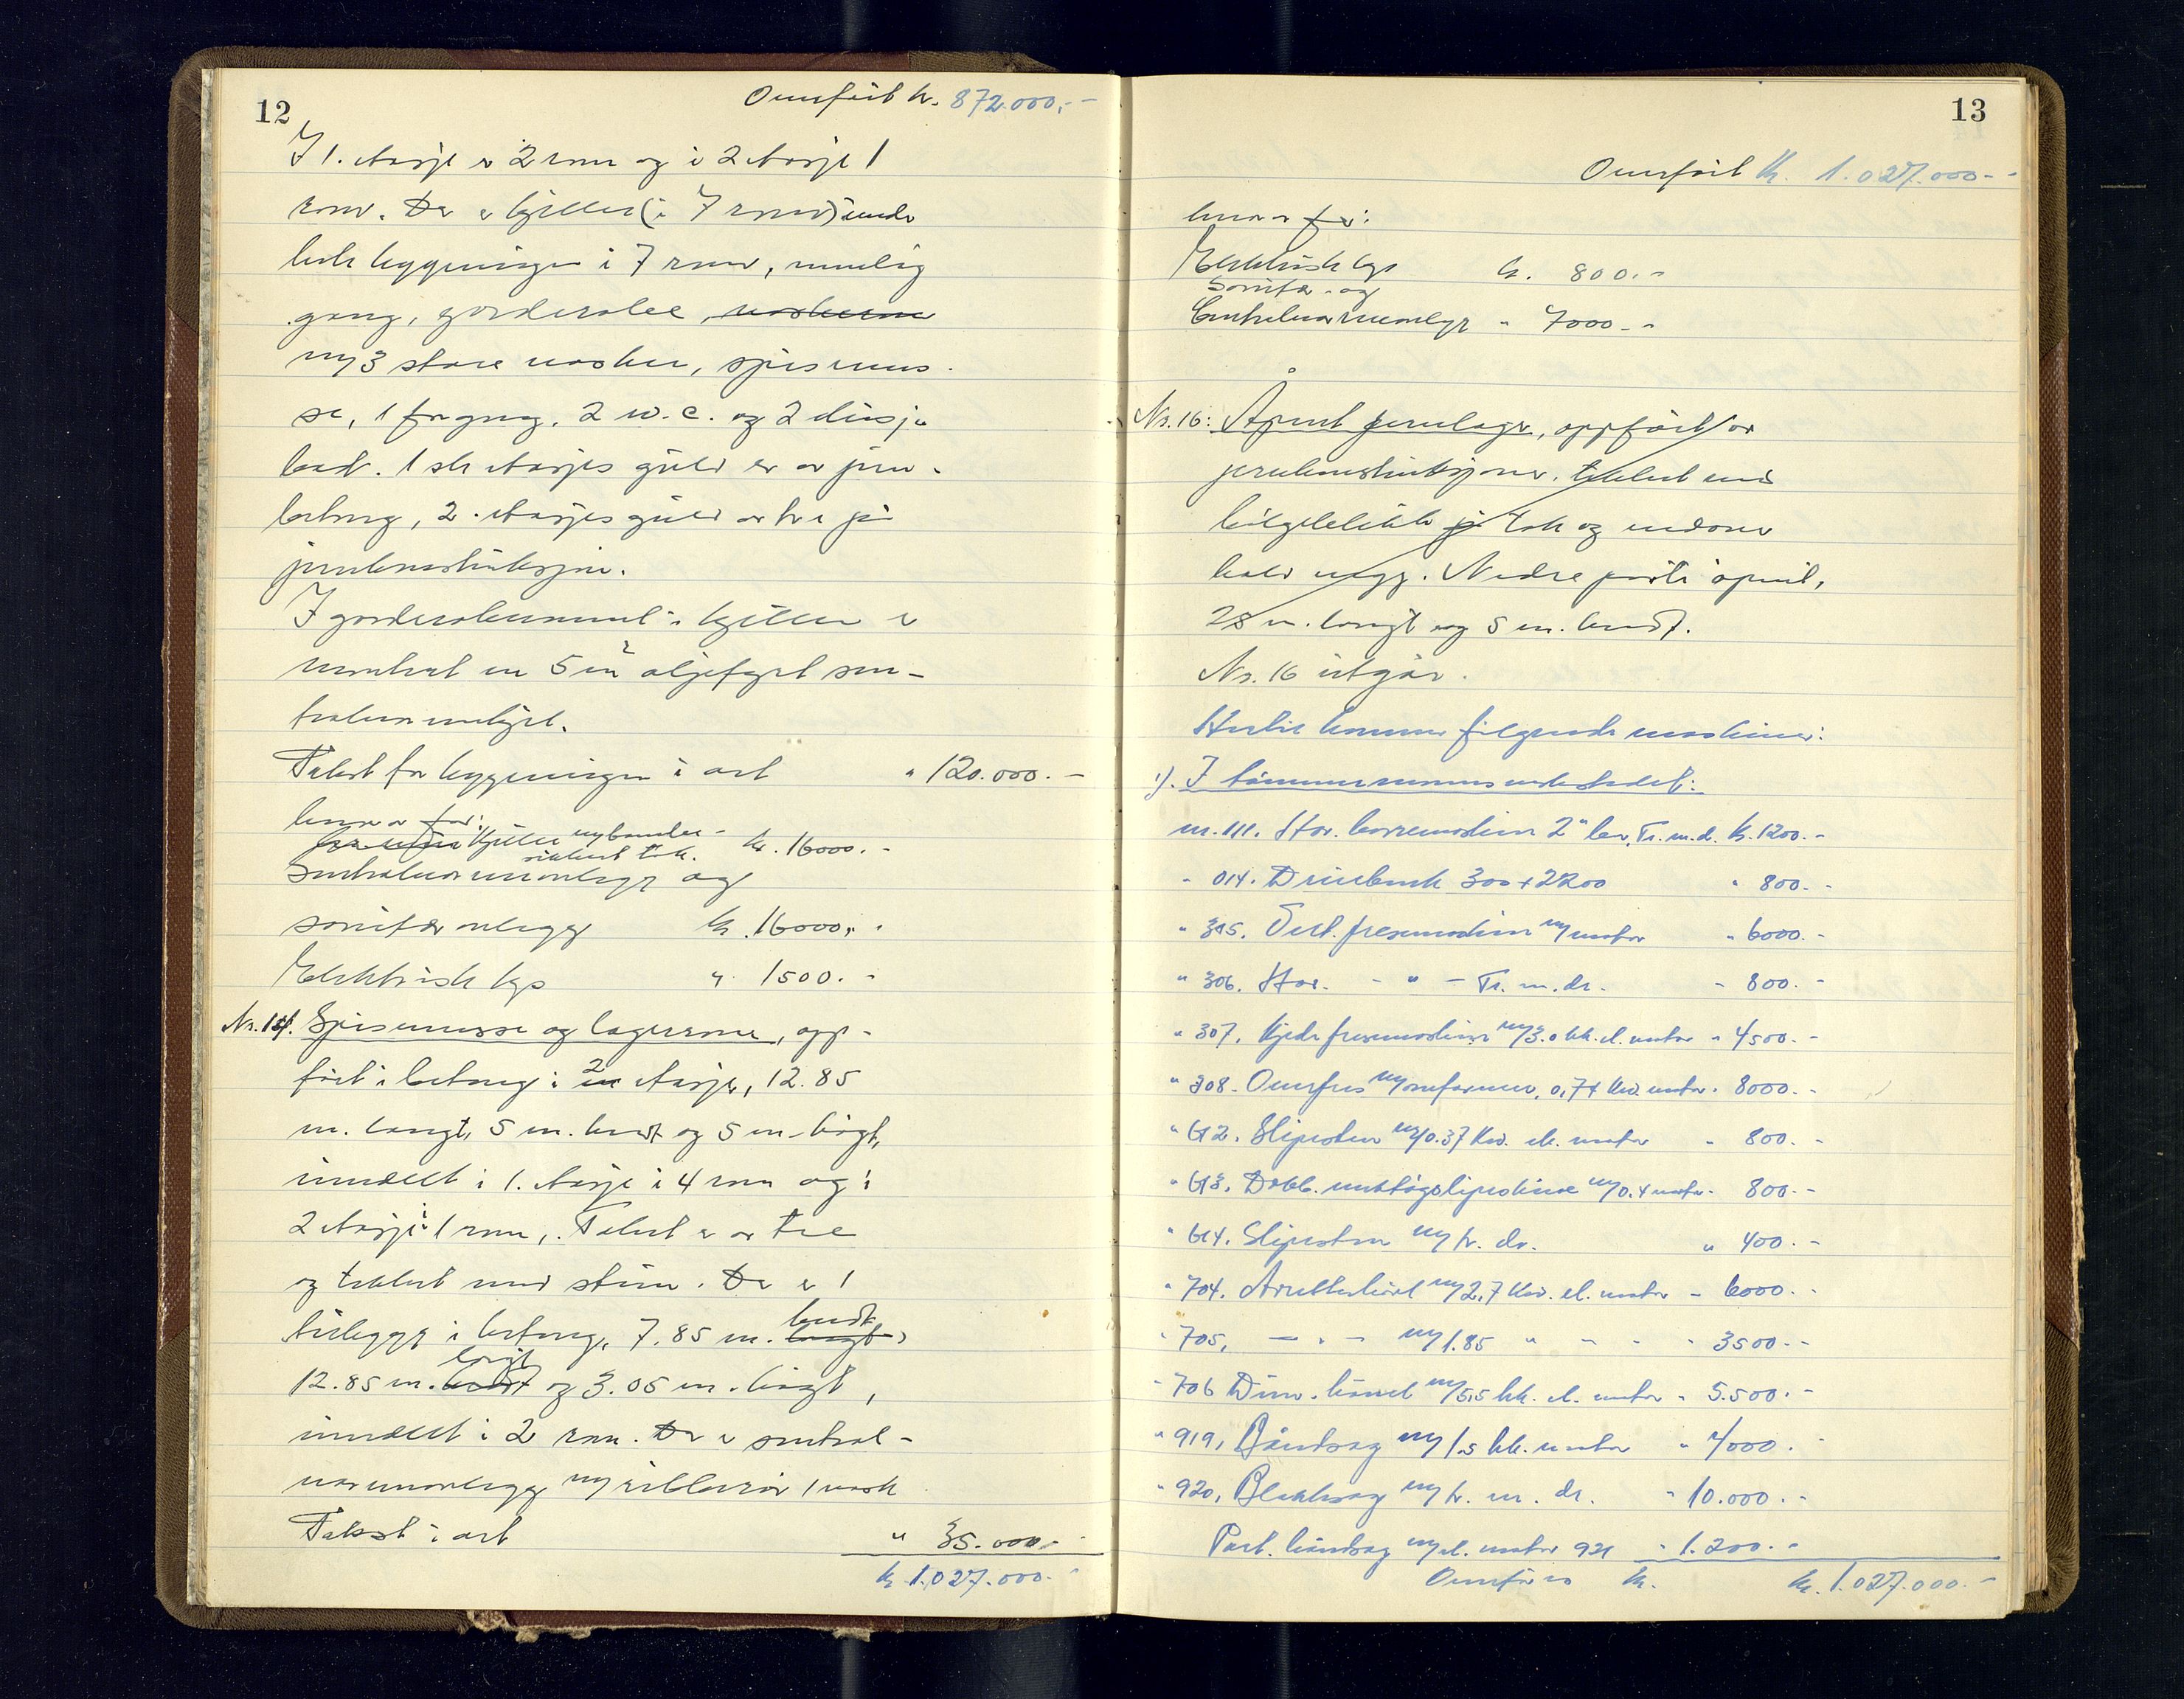 12
Overført kr. 872.000,-
I 1. etasje er 2 rom og i 2 etasje 1
rom. Der er kjeller (i 7 rom) under
hele bygningen i 7 rom, nemlig
gang, garderobe, vaskerom
m/3 store vasker, spisemes-
se, 1 fregang, 2 w.c. og 2 dusj-
bad. 1ste etasjes gulv er av jern-
betong, 2. etasjes gulv av tre på
jernkonstruksjon.
I garderoberummet i kjeller er
montert en 5 m² oljefyrt sen-
tralvarmekjel.
Takst for bygningen i alt " 120.000.-
herav for:
Kjeller m/bomber-
sikkert tak. kr. 16000.-
Sentralvarmeanlegg og
sanitæranlegg kr. 16000,-
Elektrisk lys " 1500.-
Nr. 14. Spisemesse og lagerrom, opp-
ført i betong i 2 etasjer, 12.85
m. langt, 5 m. bredt og 5 m. høgt,
inndelt i 1. etasje i 4 rom og i
2 etasje i 1 rom. Taket er av tre
og tekket med stein. Der er 1
tilbygg i betong, 7.85 m. langt bredt,
12.85 m. bredt langt og 3.05 m. høgt,
inndelt i 2 rom. Der er sentral-
varmeanlegg m/ribberør 1 vask
Takst i alt " 35.000.-
kr. 1.027.000.-
13
Overført kr. 1.027.000.-
herav for:
Elektrisk lys kr. 800.-
Sanitær- og
Centralvarmeanlegg " 7000.-
Nr. 16: Åpent jernlager, oppført av
jernkonstruksjoner, tekket med
bølgeblikk på tak og endene
halv vegg. Nedre parti åpent,
28 m. langt og 5 m. bredt.
Nr. 16 utgår.
Hertil kommer følgende maskiner:
1). I tømmermannsverkstedet:
nr. 111. Hor. borremaskin 2" bor, Tr. m. d. kr. 1200.-
" 014. Dreiebenk 300 x 2200 " 800.-
" 305. Vert. fresemaskin m/motor " 6000.-
" 306. Hor. - " - Tr. m. dr. - 800.-
" 307. Kjede fresemaskin m/3.0 hk. el. motor " 4500.-
" 308. Overfres m/omformer, 0,74 Kw. motor " 8000.-
" 612. Slipesten m/0.37 Kw. el. motor " 800.-
" 613. Dobb. verktøyslipeskive m/0.4 motor - 800.-
" 614. Slipesten m/tr. dr. " 400.-
" 704. Avretterhøvel m/2,7 Kw. el. motor - 6000.-
" 705. - " - m/1.85 " - - " 3500.-
" 706 Dim. høvel m/5,5 hk. el. motor " 5.500.-
" 919. Båndsag m/1.5 hk. motor " 4000.-
" 920. Blokksag m/tr. m. dr. " 10.000.-
Port. håndsag m/el. motor 921 " 1.200.-
Overføres kr. kr. 1.027.000.-